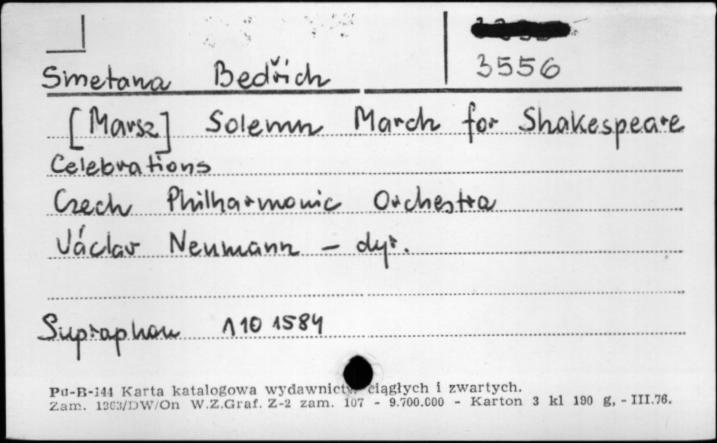 Smetana Bedřich
3556
[Marsz] Solemn March for Shakespeare
Celebrations
Czech Philharmonic Orchestra
Václav Neumann – dyr.
Supraphon 110 1584
Pu-B-144 Karta katalogowa wydawnictw ciągłych i zwartych.
Zam. 1363/DW/On W.Z.Graf. Z-2 zam. 107 - 9.700.000 - Karton 3 kl 190 g, - III.76.